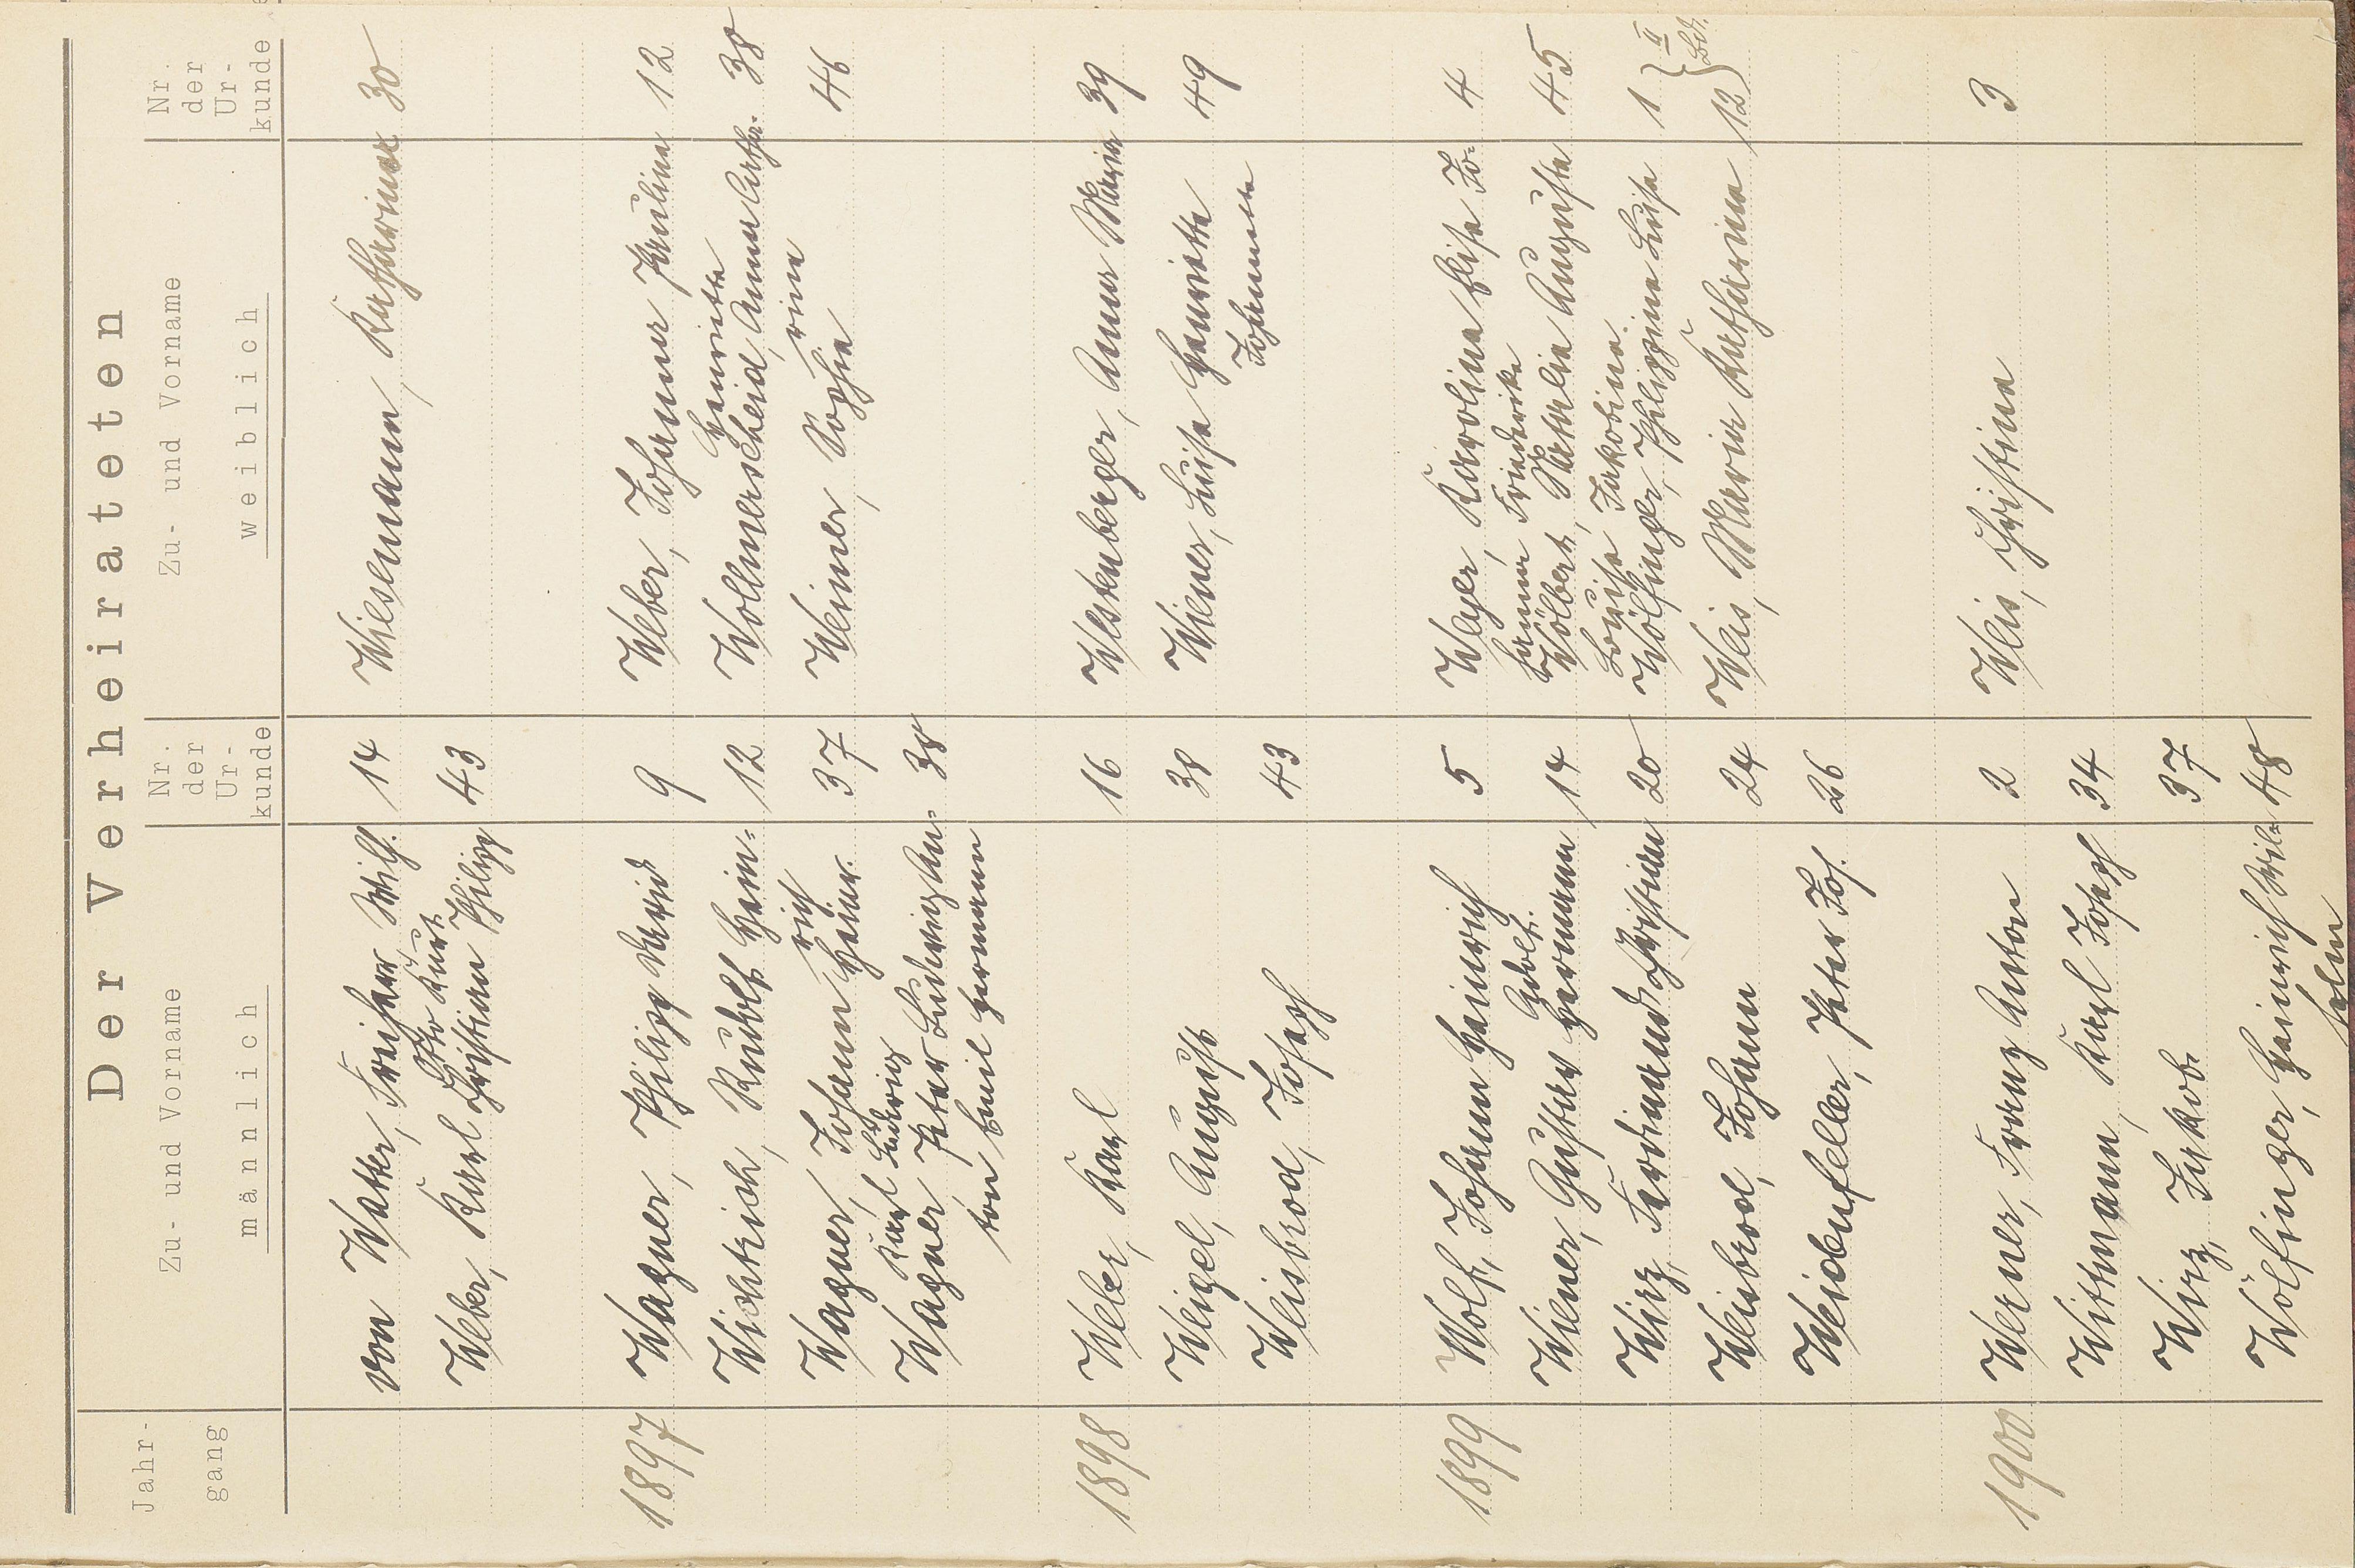 Der Verheirateten
Jahr-
gang
Zu- und Vorname
männlich
Nr.
der
Ur-
kunde
Zu- und Vorname
weiblich
Nr.
der
Ur-
kunde
von Watter, Freiherr Wilh. 14 Wiesemann, Katharina 30
Otto Kurt
Weber, Karl Christian Philipp 43
1897 Wagner, Philipp David 9 Weber, Johanna Paulina 12
Henriette
Wichtrich, Rudolf Hein= 12 Wollmerscheid, Anna Catha- 38
rich rina
Wagner, Johann Heinr. 37 Weimer, Sophie 46
Karl Ludwig
Wagner Peter Ludwig An= 38
ton Emil Hermann
1898 Weber, Karl 16 Westenberger, Anna Maria 39
Weigel, August 38 Wiener, Luise Henriette 49
Johannette
Weisbrod, Joseph 43
1899 Wolf, Johann Heinrich 5 Weyer, Karolina Elise Jo= 4
hanna Friederike
Adolf.
Wiener, Gustav Hermann 14 Wölbert, Natalie Auguste 45
Louise Jakobina.
Wirz, Ferdinand Christian 20 Wölfinger, Philippine Luise 1 } II
Weisbrod, Johann 24 Weis, Maria Katharina 12 } Bd.
Weidenfeller, Peter Jos. 26
1900 Werner, Franz Anton 2 Weis, Christina 3
Wittmann, Karl Joseph 34
Wirz, Jakob 37
Wölfinger, Heinrich Wil= 48
helm